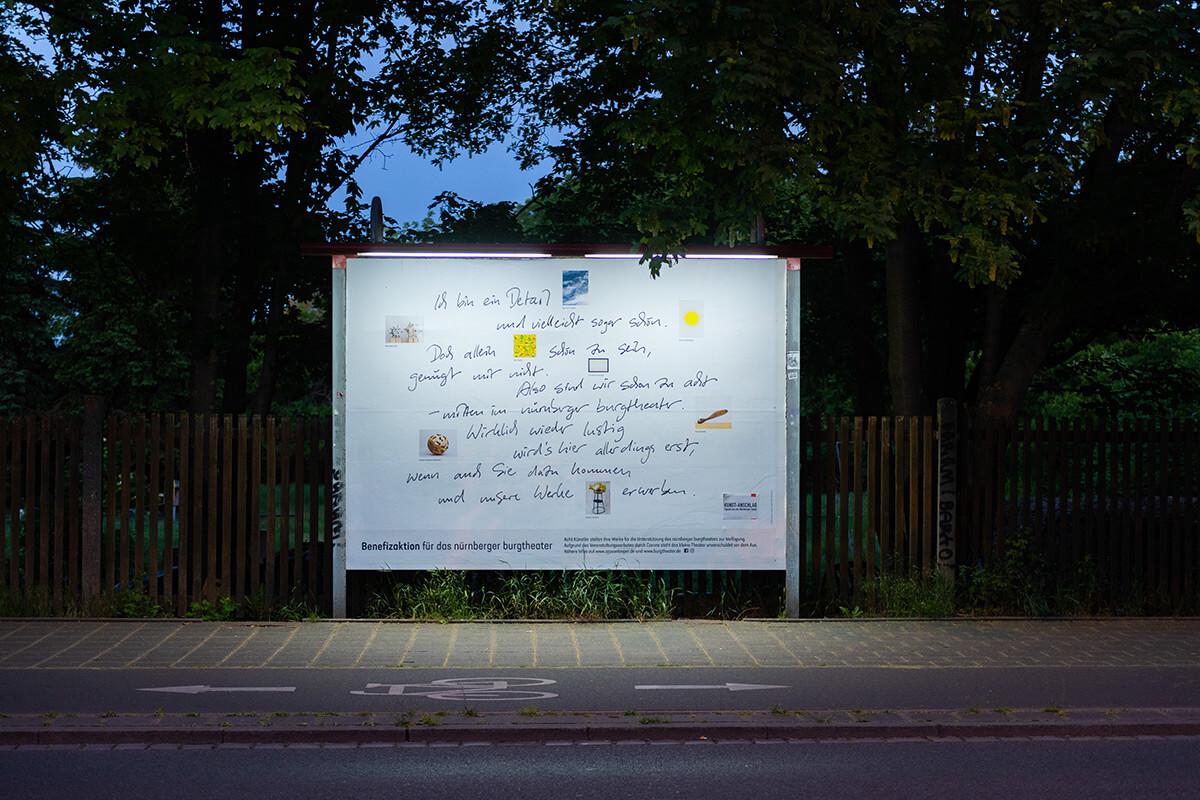 Ich bin ein Detail
und vielleicht sogar schön.
Doch allein schön zu sein,
genügt mir nicht.
Also sind wir schon zu acht
– mitten im nürnberger burgtheater.
Wirklich wieder lustig
wird's hier allerdings erst,
wenn auch Sie dazu kommen
und unsere Werke erwerben.
KUNST-ANSCHLAG
Benefizaktion für das nürnberger burgtheater
Acht Künstler stellen ihre Werke für die Unterstützung des nürnberger burgtheaters zur Verfügung.
Aufgrund des Veranstaltungsverbotes durch Corona steht das kleine Theater unverschuldet vor dem Aus.
Nähere Infos auf und www.burgtheater.de